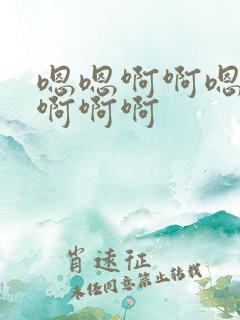 嗯嗯啊啊嗯
啊啊啊
肖速征
未经同意禁止转载